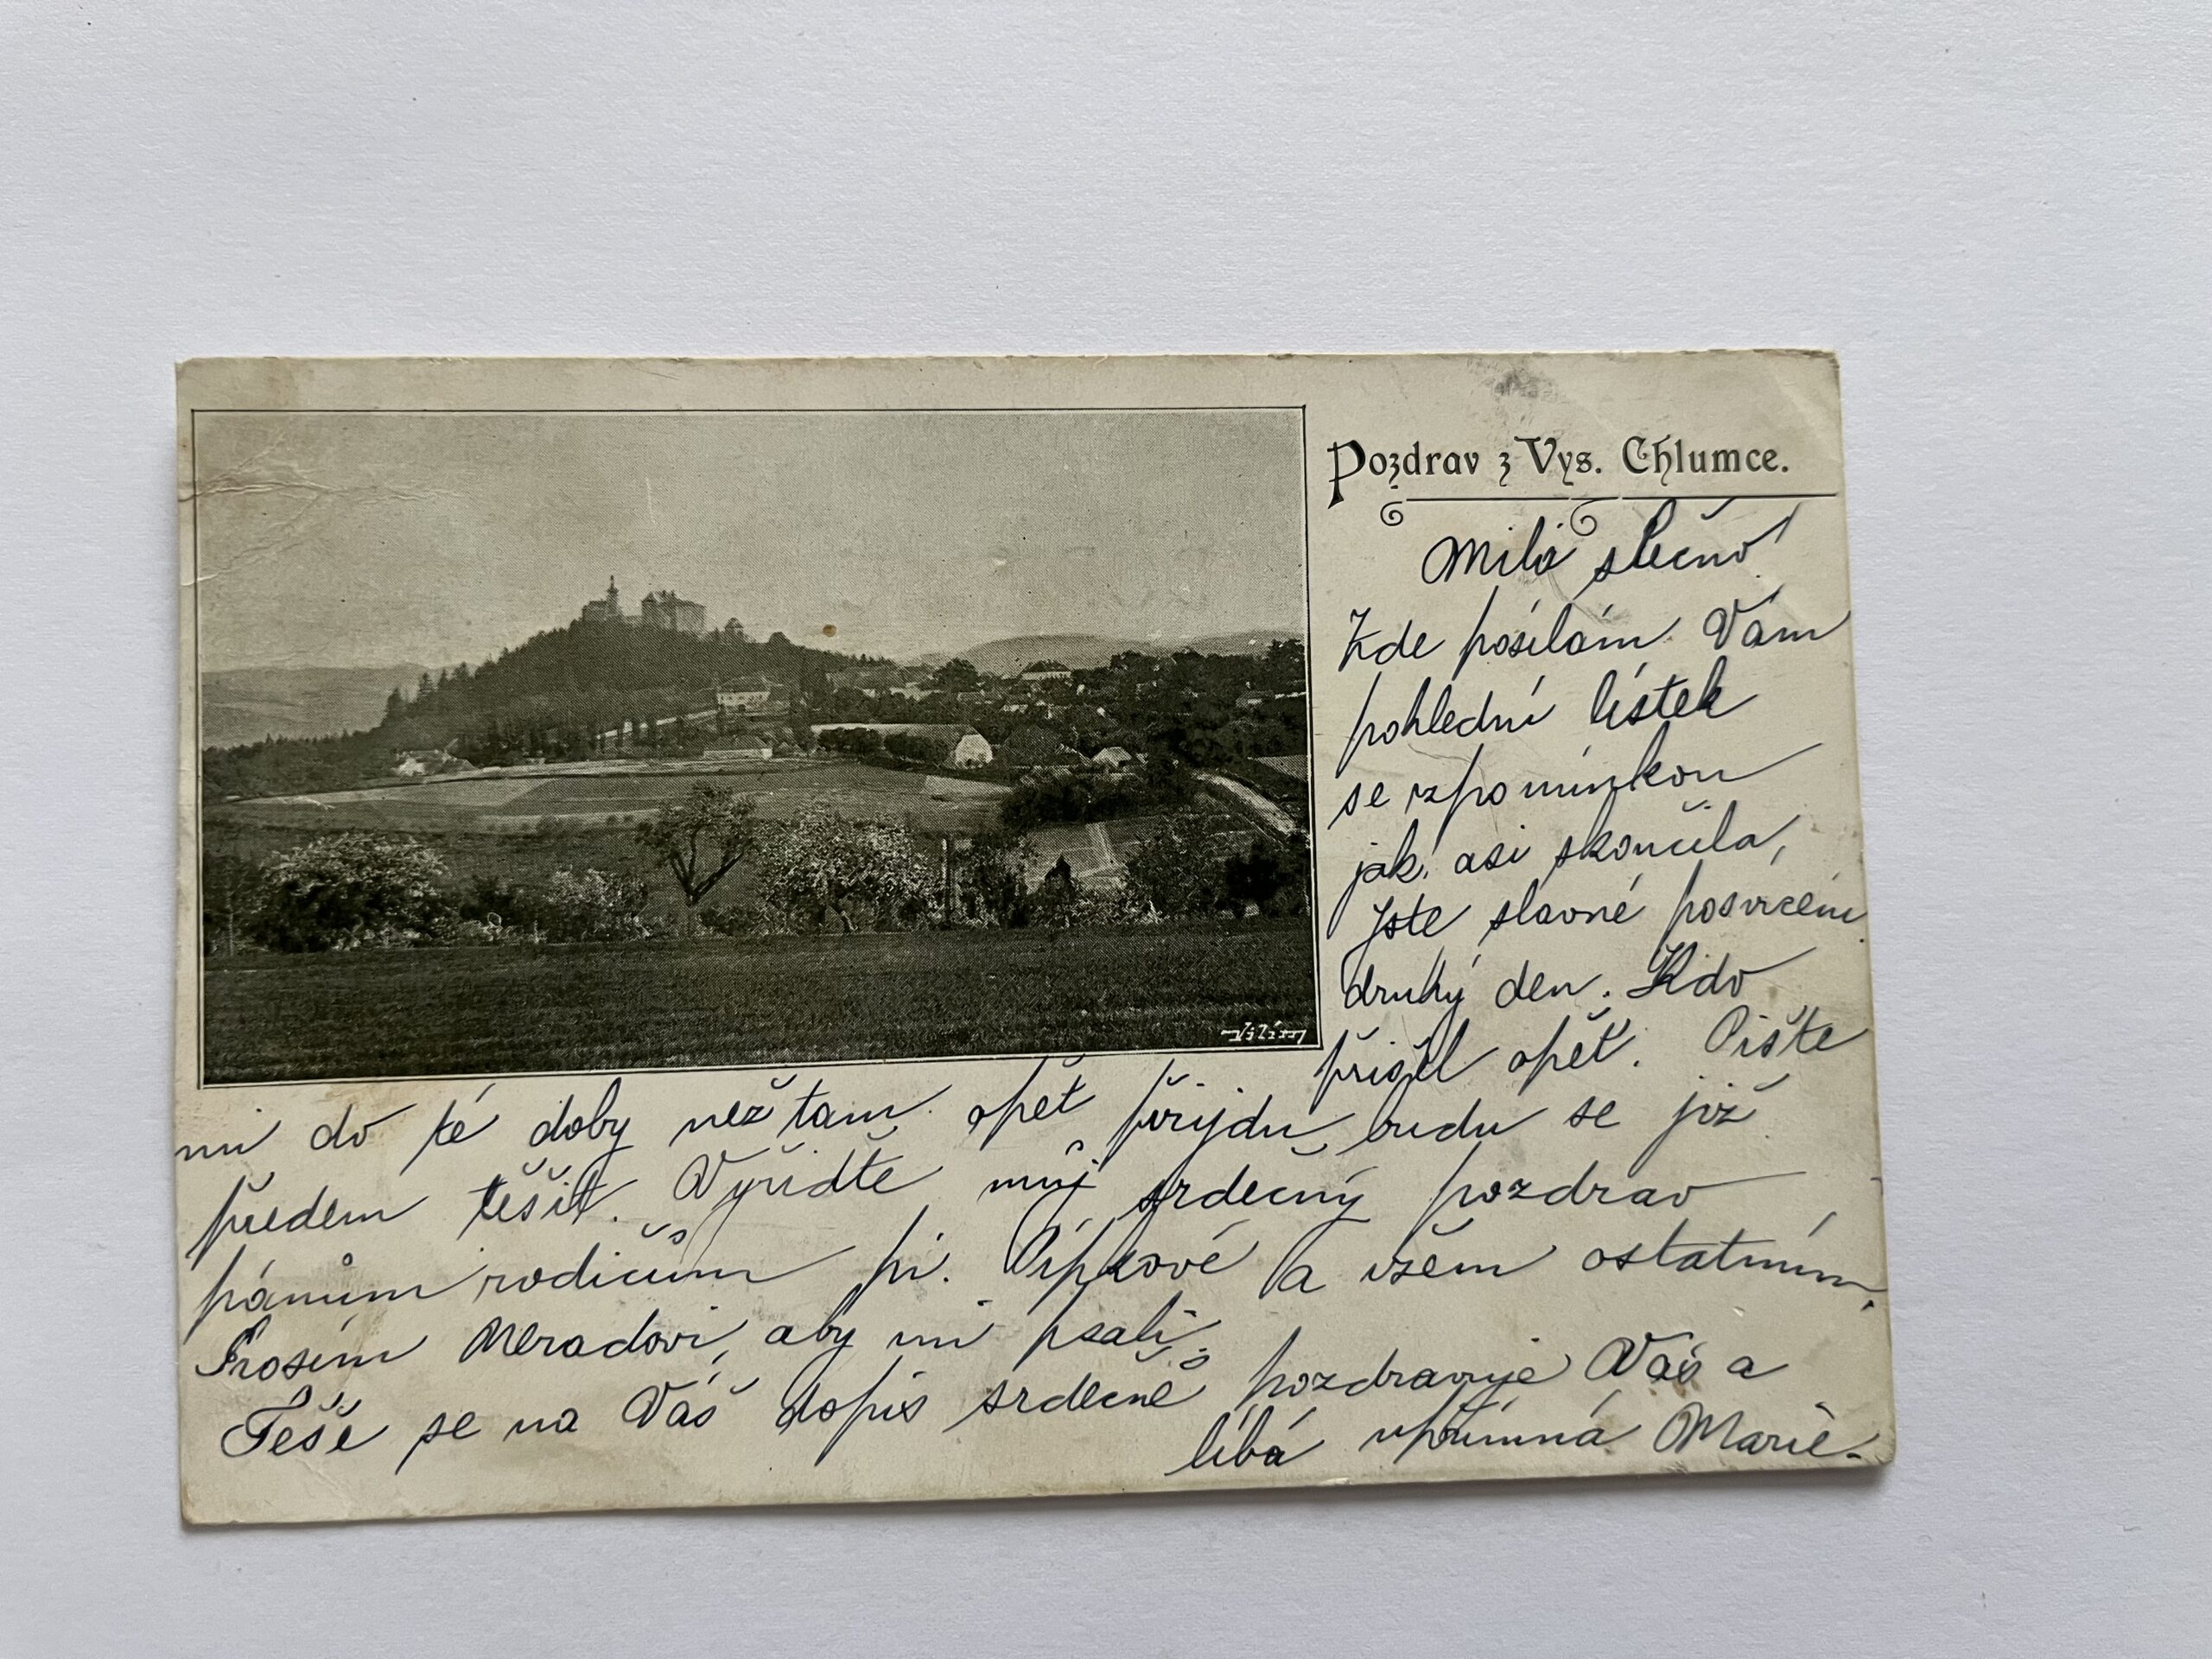 Pozdrav z Vys. Chlumce.
Milá slečno!
Zde posílám Vám
pohlední lístek
se vzpomínkou
jak asi skončila,
jste slavné posvícení
druhý den. Kdo
přišel opět. Pište
mi do té doby než tam opět přijdu, budu se již
předem těšit. Vyřiďte můj srdečný pozdrav
pánům rodičům pí. a všem ostatním.
Prosím aby mi psali,
Těše se na Váš dopis srdečně pozdravuje Vás a
líbá upřímná Marie.